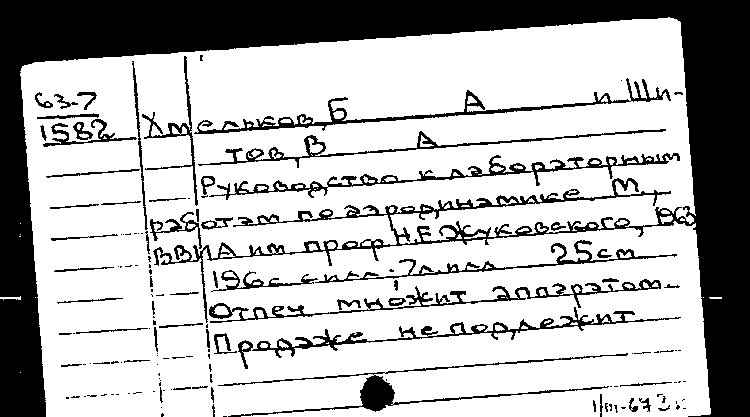 63-7
1582
Хмельков, Б А и Ши-
тов, В А
Руководство к лабораторным
работам по аэродинамике. М.,
ВВИА им. проф Н.Е Жуковского, 1963
196 с. с илл.; 7 л. илл 25 см
Отпеч множит. аппаратом.
Продаже не подлежит